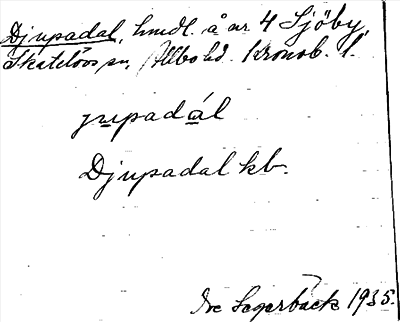 Djupadal, hmdl. å ar 4 Sjöby,
Skatelövs sn. Allbo hd. Kronob. l.
jupadál
Djupadal kb.
Segerbäck 1935.